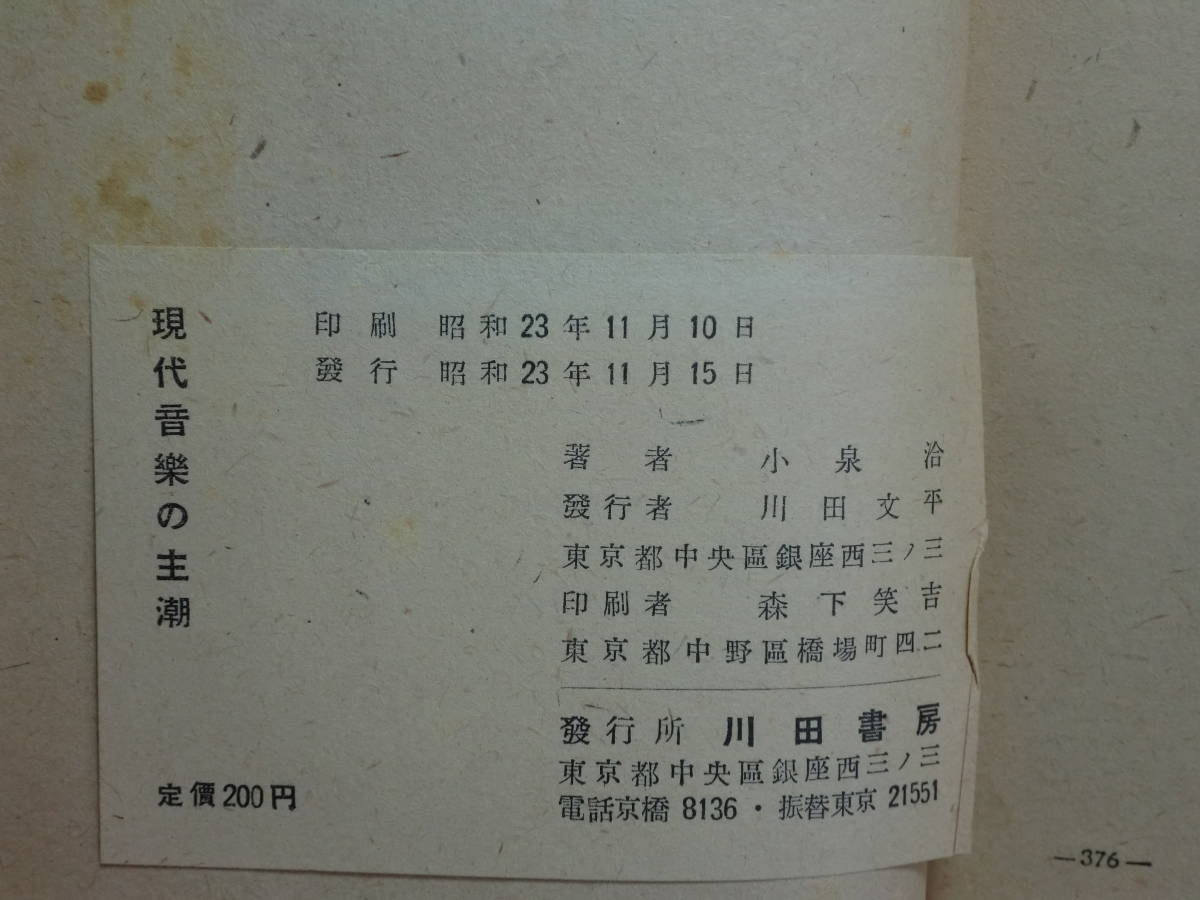 現代音樂の主潮
印刷 昭和23年11月10日
發行 昭和23年11月15日
著者 小泉洽
發行者 川田文平
東京都中央區銀座西三ノ三
印刷者 森下笑吉
東京都中野區橋場町四二
發行所 川田書房
東京都中央區銀座西三ノ三
電話京橋 8136・振替東京 21551
定價200円
—376—